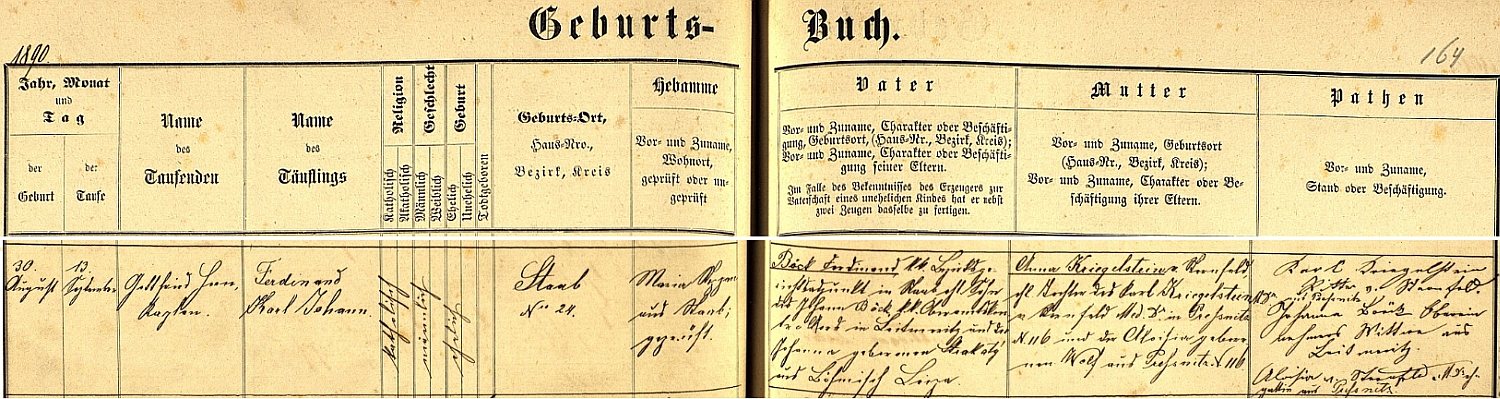 Geburts-Buch.
1890.
164
Jahr, Monat
und
Tag
der
Geburt
der
Taufe
Name
des
Taufenden
Name
des
Täuflings
Religion
Katholisch
Akatholisch
Geschlecht
Männlich
Weiblich
Geburt
Ehelich
Unehelich
Todtgeboren
Geburts-Ort,
Haus-Nro.,
Bezirk, Kreis
Hebamme
Vor- und Zuname,
Wohnort,
geprüft oder un-
geprüft
Vater
Vor- und Zuname, Charakter oder Beschäfti-
gung, Geburtsort, (Haus-Nr., Bezirk, Kreis);
Vor- und Zuname, Charakter oder Beschäfti-
gung seiner Eltern.
Im Falle des Bekenntnisses des Erzeugers zur
Vaterschaft eines unehelichen Kindes hat er nebst
zwei Zeugen dasselbe zu fertigen.
Mutter
Vor- und Zuname, Geburtsort
(Haus-Nr., Bezirk, Kreis);
Vor- und Zuname, Charakter oder Be-
schäftigung ihrer Eltern.
Pathen
Vor- und Zuname,
Stand oder Beschäftigung.
30.
August
13.
September
Gottfried
Kaplan.
Ferdinand
Karl Johann.
katholisch
männlich
ehelich
Staab
No 24.
Maria
aus Staab;
geprüft.
Böck Ferdinand k.k. Bezirksge-
richtsadjunkt in Staab ehl. Sohn
des Johann Böck k.k.
in Leitmeritz und der
Johanna geborenen
aus Böhmisch Leipa.
Anna Kriegelstein v. Sternfeld
ehl. Tochter des Karl Kriegelstein
v. Sternfeld M.Dr. in Preßnitz
N 116 und der Aloisia gebor-
nen Wolf aus Preßnitz N 116.
Karl Kriegelstein
Ritter v. Sternfeld
M.Dr. aus Preßnitz.
Johanna Böck Oberein
nehmers Wittwe aus
Leitmeritz.
Aloisia v. Sternfeld M.Dr.
gattin aus Preßnitz.